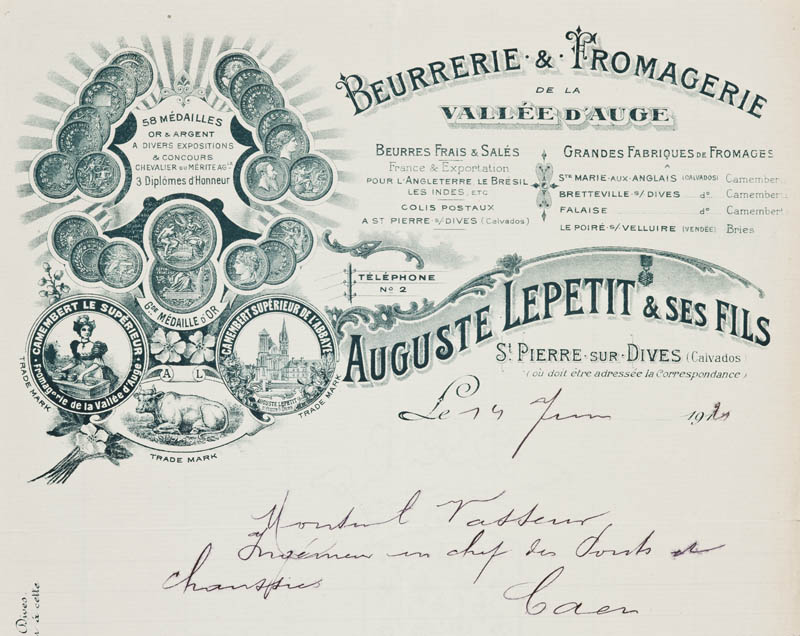 58 MÉDAILLES
OR & ARGENT
A DIVERS EXPOSITIONS
& CONCOURS
CHEVALIER DU MÉRITE AGLE
3 Diplômes d'Honneur
GDE MÉDAILLE D'OR
CAMEMBERT LE SUPÉRIEUR
Fromagerie de la Vallée d'Auge
TRADE MARK
CAMEMBERT SUPÉRIEUR DE L'ABBAYE
AUGUSTE LEPETIT
TRADE MARK
A L
TRADE MARK
BEURRERIE & FROMAGERIE
DE LA
VALLÉE D'AUGE
BEURRES FRAIS & SALÉS
France & Exportation
POUR L'ANGLETERRE LE BRÉSIL
LES INDES, ETC
COLIS POSTAUX
A ST PIERRE S/DIVES (Calvados)
GRANDES FABRIQUES DE FROMAGES
STE MARIE-AUX-ANGLAIS (CALVADOS) Camembert
BRETTEVILLE S/DIVES do Camembert
FALAISE do Camembert
LE POIRÉ S/VELLUIRE (VENDÉE) Bries
TÉLÉPHONE
No 2
AUGUSTE LEPETIT & SES FILS
St PIERRE-SUR-DIVES (Calvados)
(où doit être adressée la Correspondance)
Le 14 Juin 19
Vasseur
Ingénieur en chef des Ponts et
chaussées
Caen
Dives
à cette